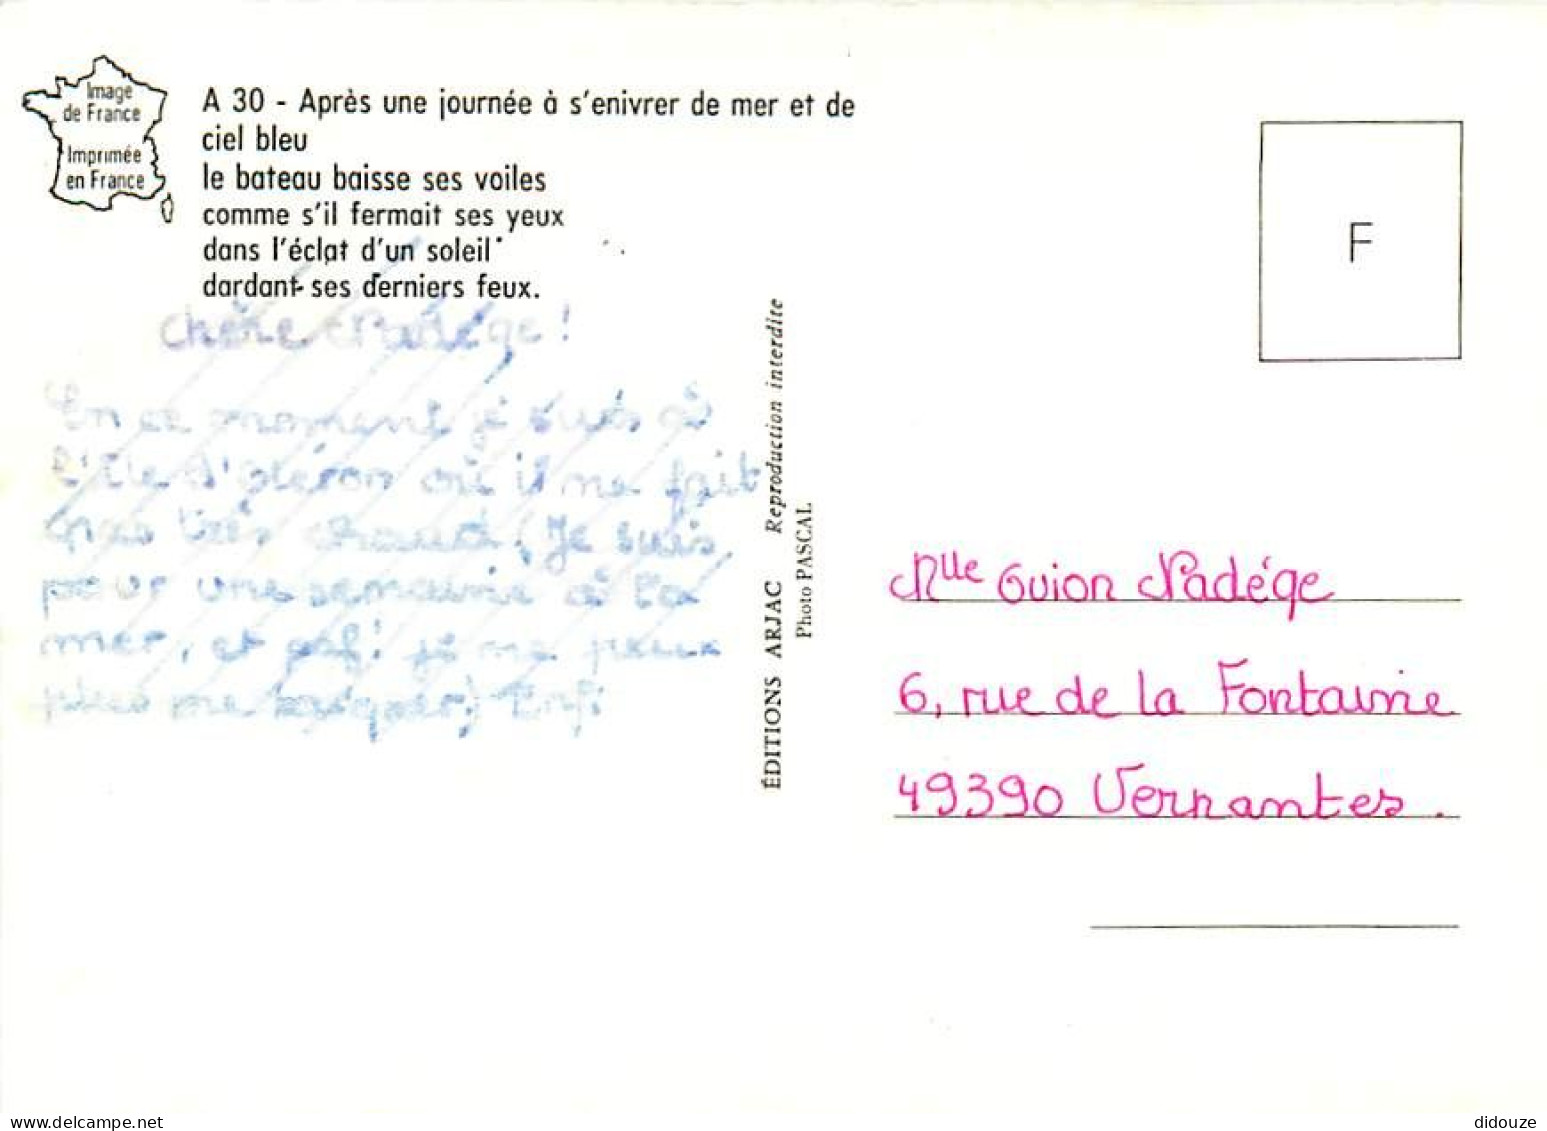 Image
de France
Imprimée
en France
A 30 - Après une journée à s'enivrer de mer et de
ciel bleu
le bateau baisse ses voiles
comme s'il fermait ses yeux
dans l'éclat d'un soleil
dardant ses derniers feux.
Chère Nadége !
En ce moment je suis à
l'Ile d'Oléron où il ne fait
pas très chaud. (Je suis
pour une semaine à la
mer, et paf! je ne peux
plus me baigner) Enfi
ÉDITIONS ARJAC Reproduction interdite
Photo PASCAL
F
Mlle Guion Nadége
6, rue de la Fontaine
49390 Vernantes.
didouze